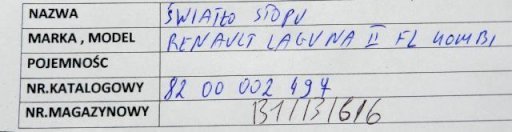 NAZWA ŚWIATŁO STOPU
MARKA , MODEL RENAULT LAGUNA II FL KOMBI
POJEMNOŚĆ
NR.KATALOGOWY 82 00 002 497
NR.MAGAZYNOWY B1/13/6/6